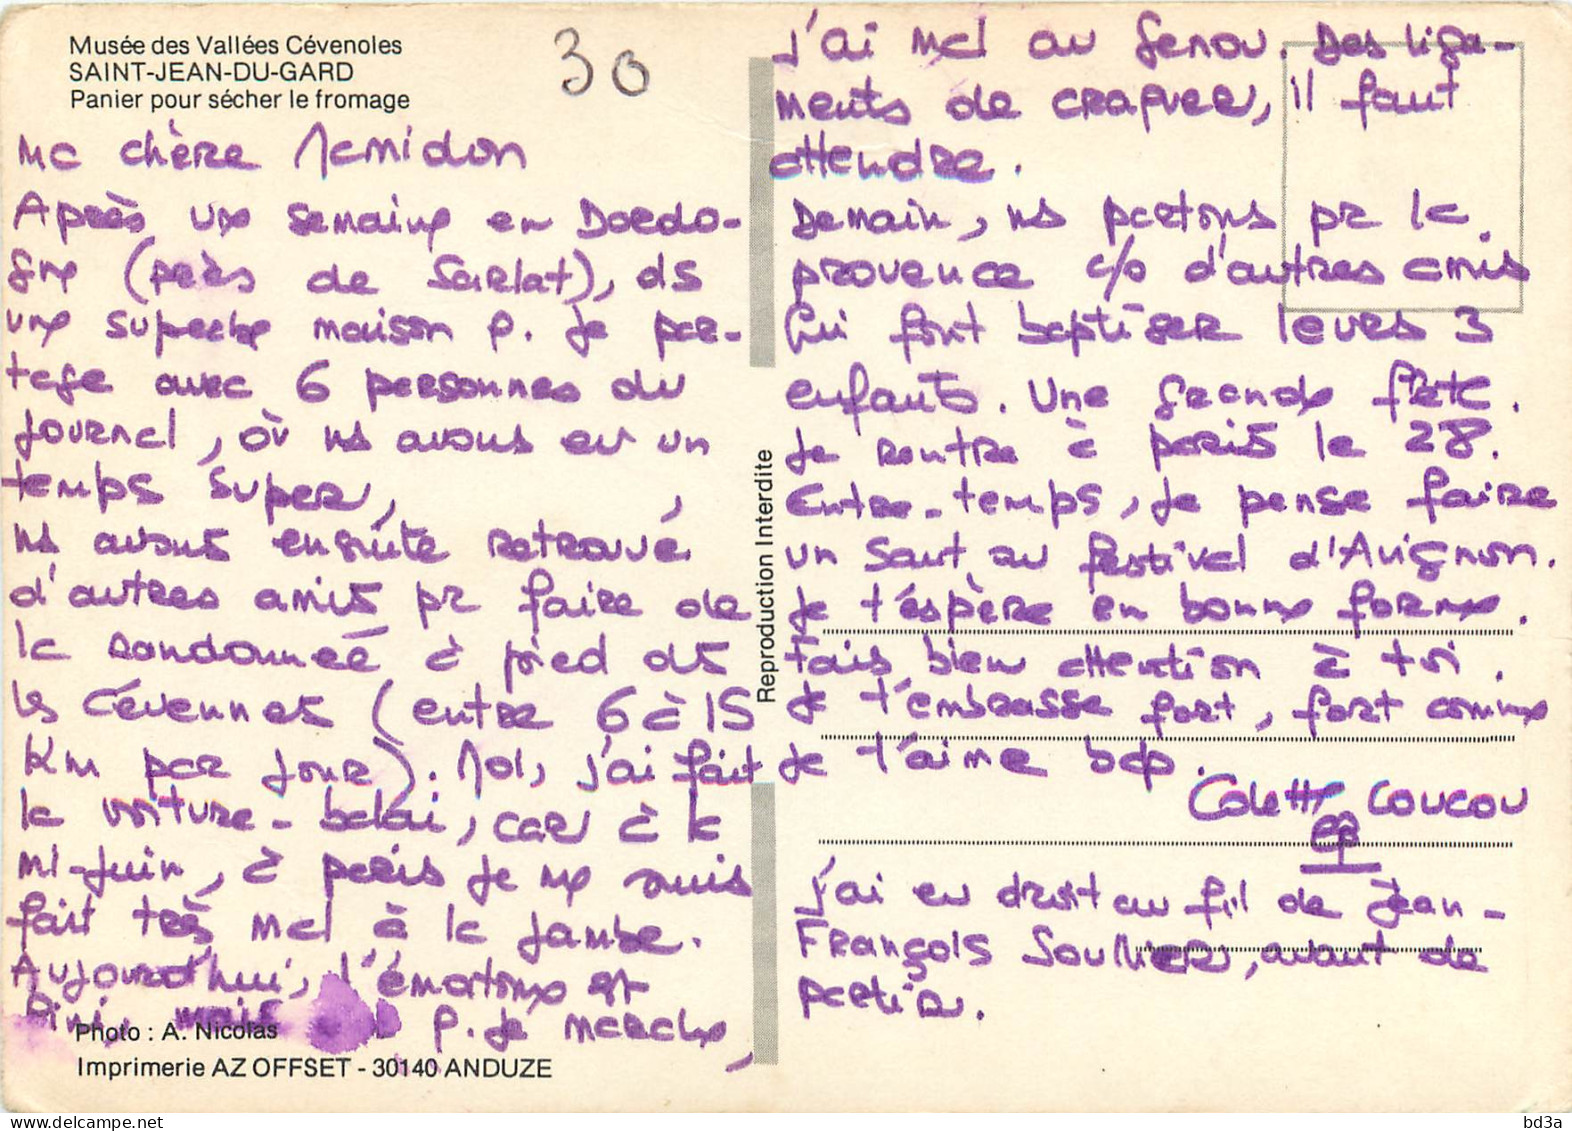 Musée des Vallées Cévenoles
SAINT-JEAN-DU-GARD
Panier pour sécher le fromage
30
Ma chère
Après une semaine en Dordo-
gne (près de Sarlat), ds
une superbe maison p. je par-
tage avec 6 personnes du
journal, où ns avons eu un
temps super,
ns avons ensuite retrouvé
d'autres amis pr faire de
la randonnée à pied ds
les Cévennes (entre 6 à 15
Km par jour). Moi, j'ai fait
la voiture-balai, car à la
mi-juin, à Paris je me suis
fait très mal à la jambe.
Aujourd'hui, l'émotion est
mais p. je marche,
Photo : A. Nicolas
Imprimerie AZ OFFSET - 30140 ANDUZE
Reproduction Interdite
j'ai mal au genou. Des liga-
ments de craquer, il faut
attendre.
Demain, ns partons pr la
Provence c/o d'autres amis
qui font baptiser leurs 3
enfants. Une grande fête.
Je rentre à Paris le 28.
Entre-temps, je pense faire
un saut au festival d'Avignon.
Je t'espère en bonne forme.
Fais bien attention à toi.
Je t'embrasse fort, fort comme
je t'aime bcp.
Colette Coucou
J'ai eu droit au fil de Jean-
François Soullier, avant de
partir.